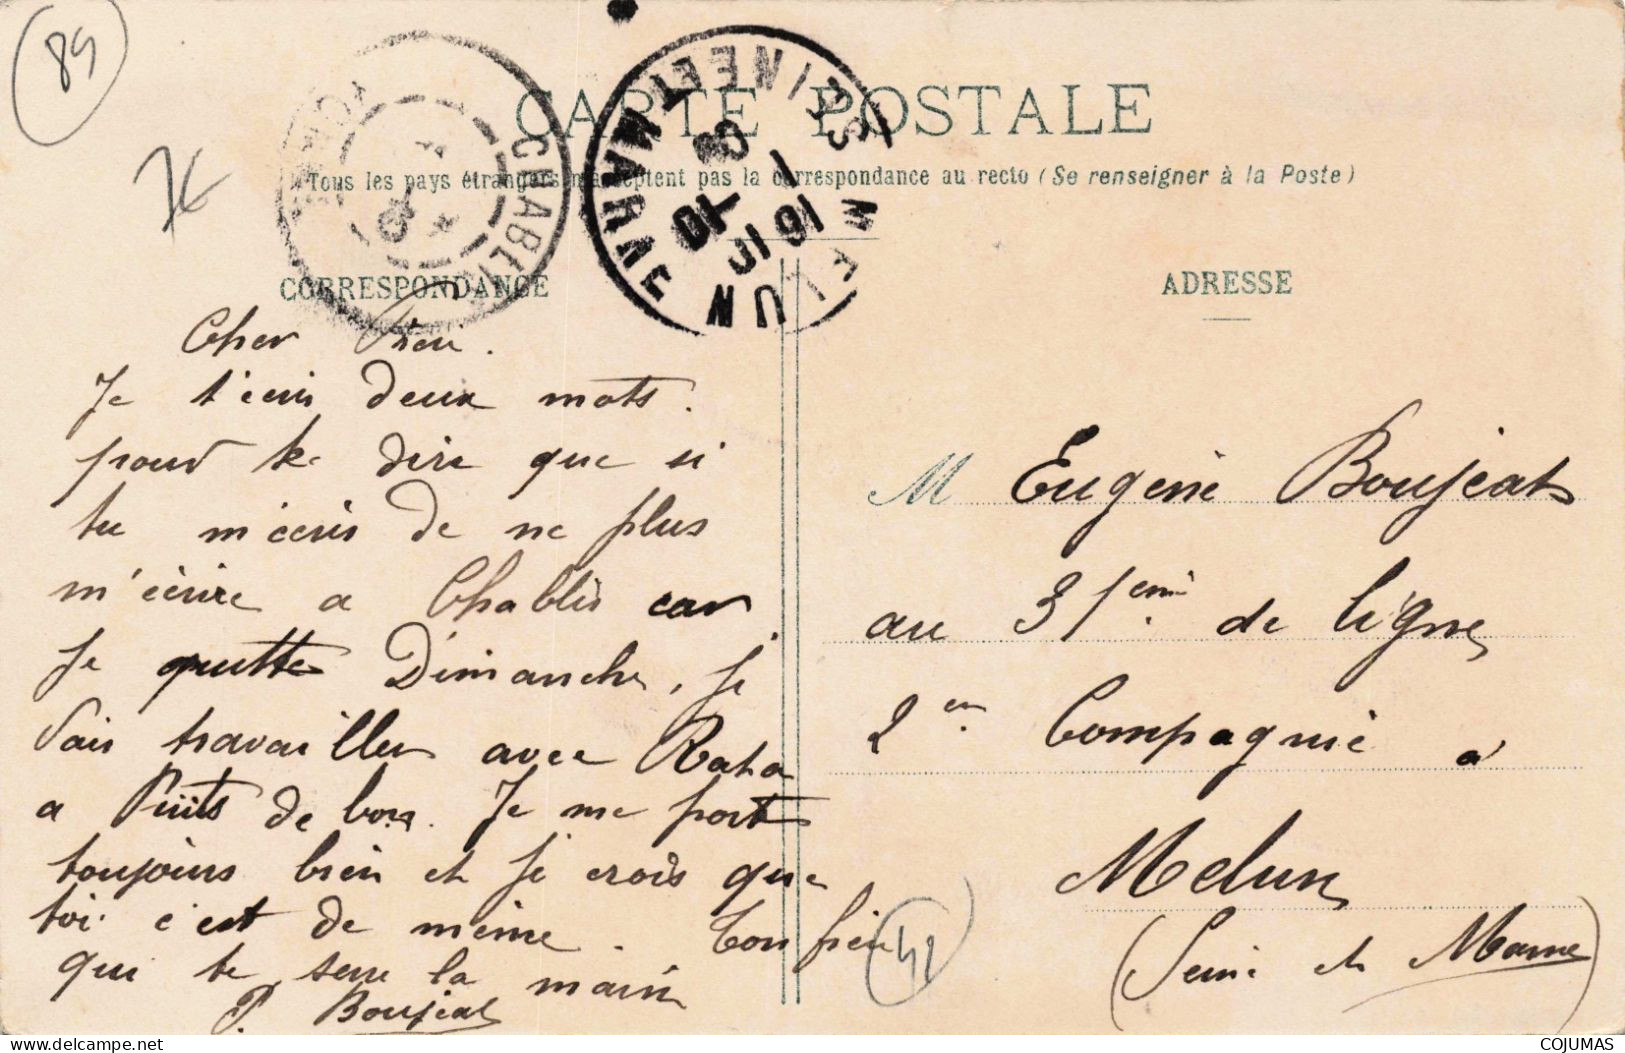 89
7€
CARTE POSTALE
Tous les pays étrangers n'acceptent pas la correspondance au recto (Se renseigner à la Poste)
CHABLIS
MELUN SEINE ET MARNE
16 1
CORRESPONDANCE
Cher Frère.
Je t'ecris deux mots.
pour te dire que si
tu m'écris de ne plus
m'écrire a Chablis car
je quitte Dimanche, je
vais travailler avec Rata
a Puits de bon. Je me port
toujours bien et je crois que
toi c'est de même. Ton frère
qui te serre la main
P. Boujeat
42
ADRESSE
M Eugène Boujeat
au 31ème de ligne
2em Compagnie à
Melun
(Seine et Marne)
delcampe.net
COJUMAS